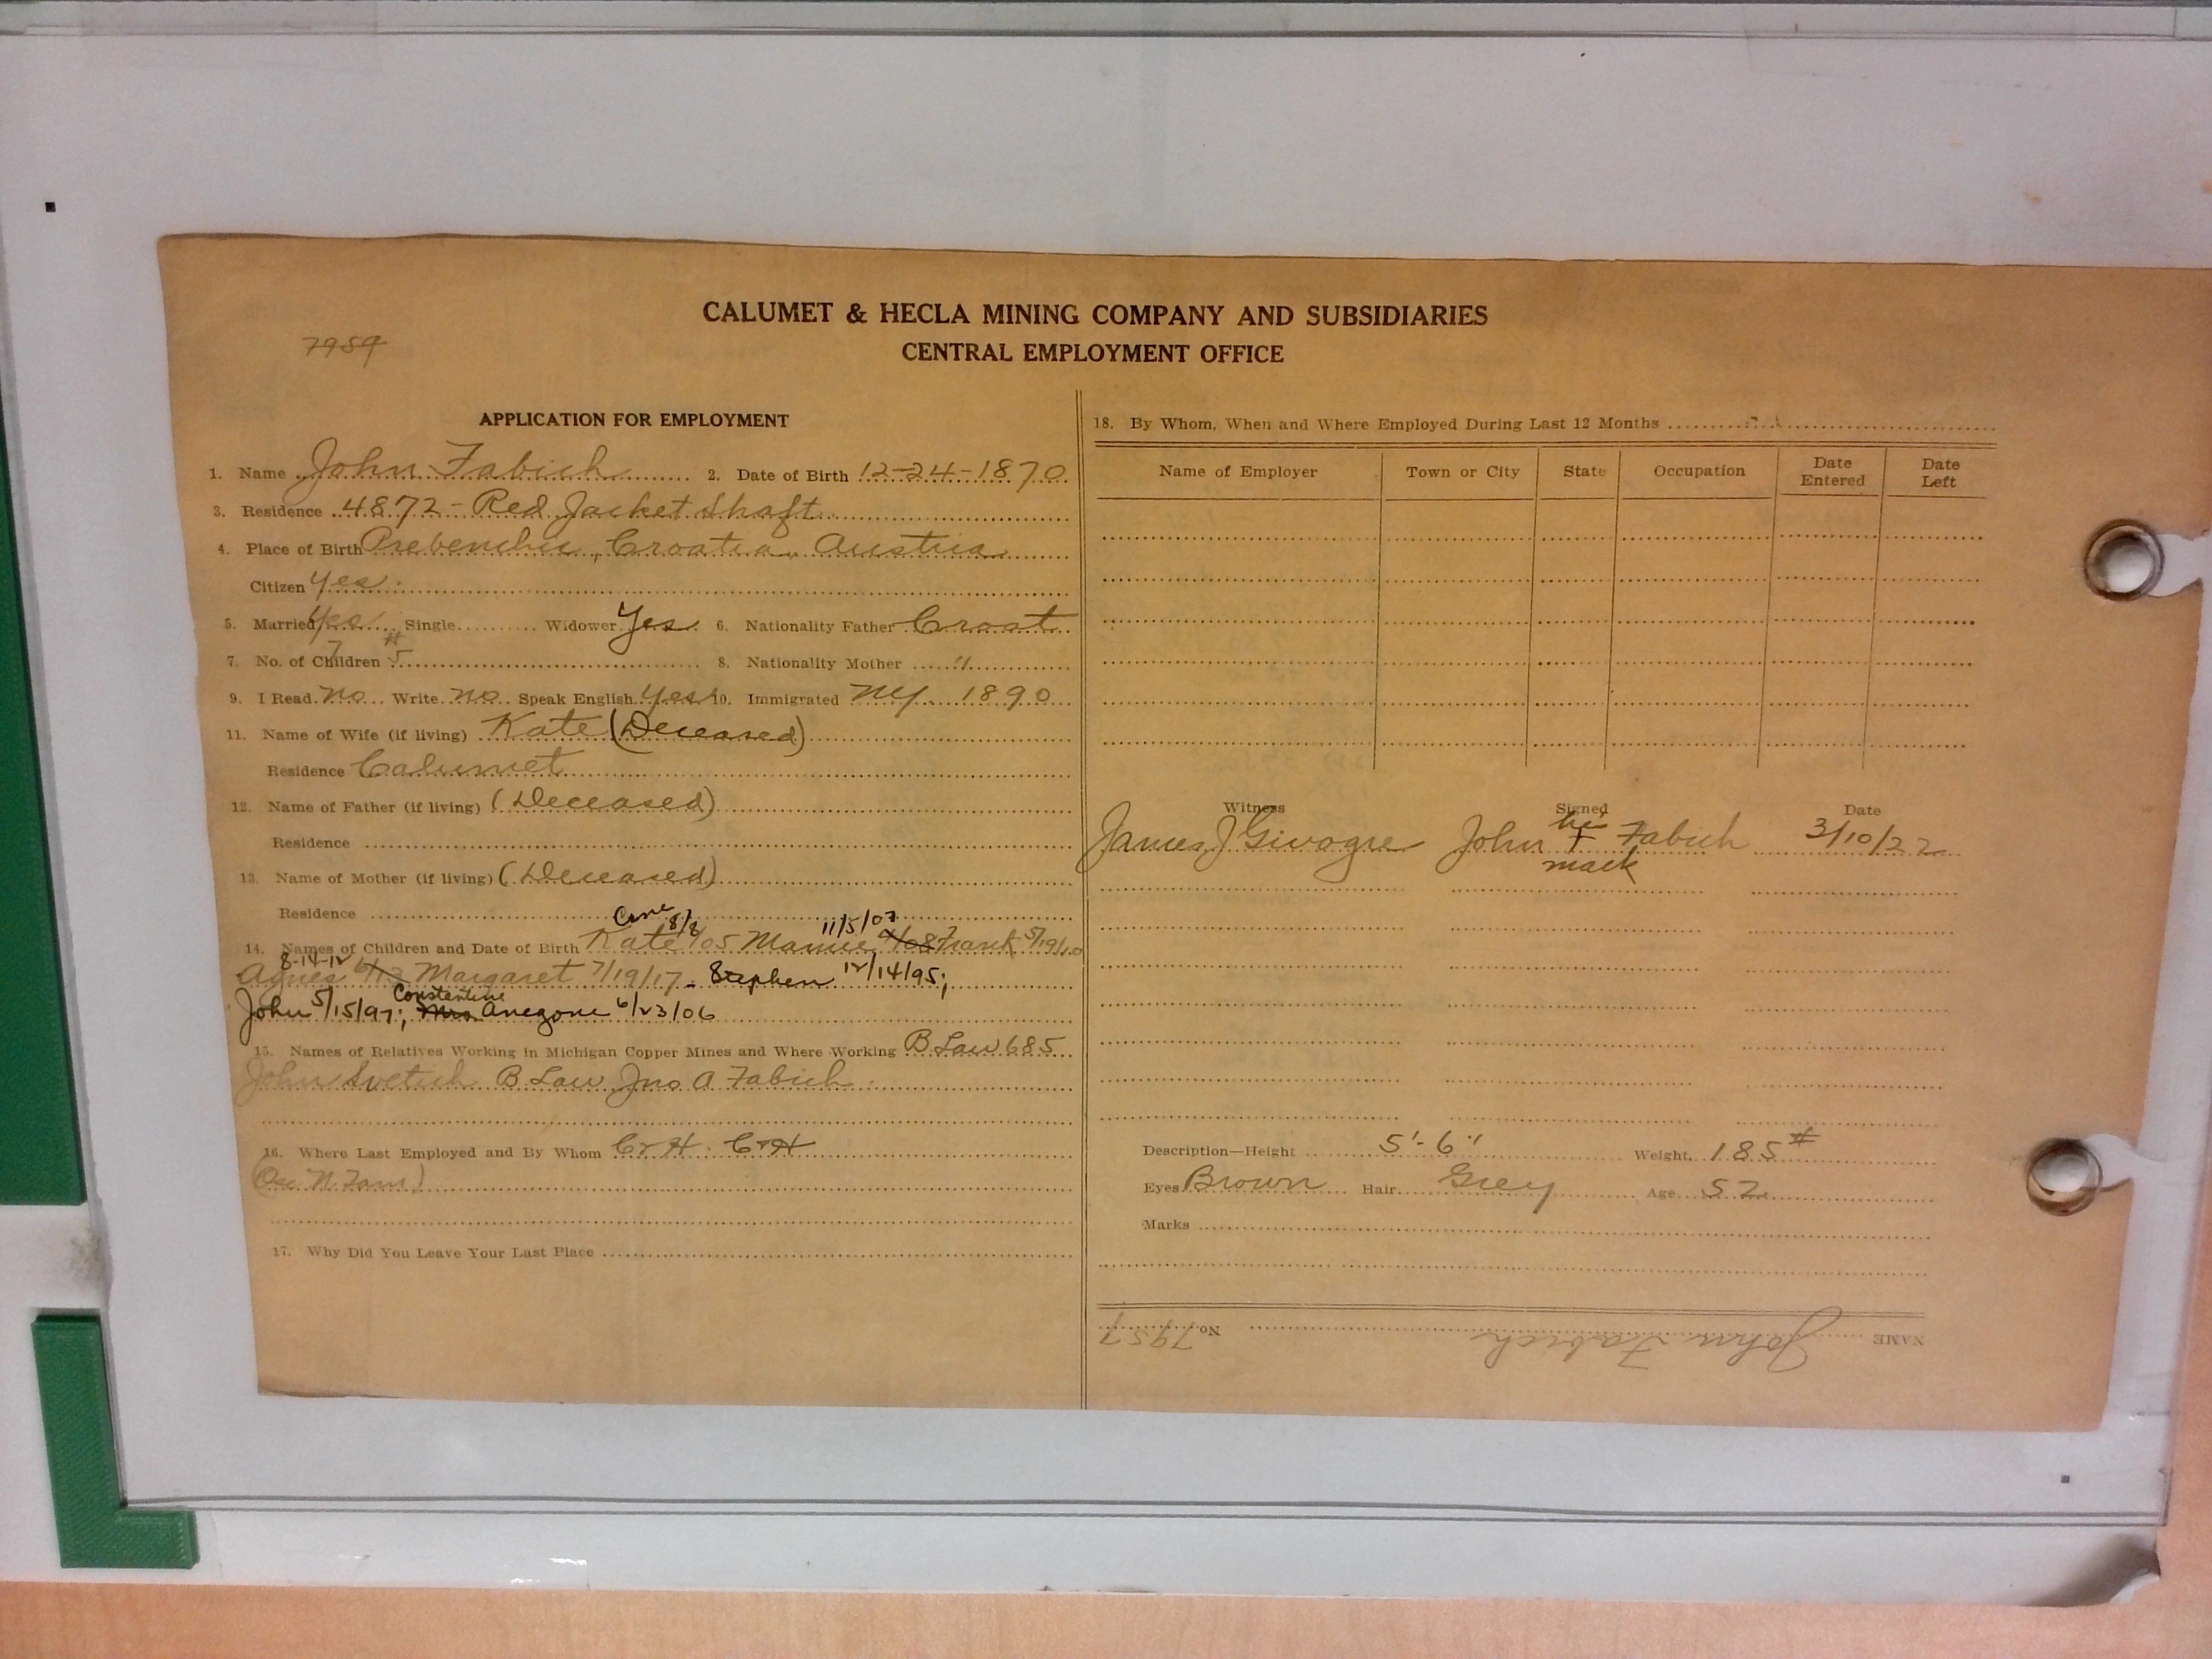 CALUMET & HECLA MINING COMPANY AND SUBSIDIARIES
7959
CENTRAL EMPLOYMENT OFFICE
APPLICATION FOR EMPLOYMENT
1. Name John Fabich 2. Date of Birth 12-24-1870
3. Residence 4872 - Red Jacket Shaft
4. Place of Birth Croatia, Austria
Citizen Yes
5. Married Yes Single Widower Yes 6. Nationality Father Croat
7. No. of Children 5 7 8. Nationality Mother "
9. I Read No Write No Speak English Yes 10. Immigrated NY. 1890
11. Name of Wife (if living) Kate (Deceased)
Residence Calumet
12. Name of Father (if living) (Deceased)
Residence
13. Name of Mother (if living) (Deceased)
Residence
8/8 11/5/07
14. Names of Children and Date of Birth Kate /05 Mamie 4/08 Frank 5/19/10
8-14-12
Agnes 6/13 Margaret 7/19/17 - Stephen 12/14/95;
Constantine
John 5/15/97; Mrs. Anegone 6/23/06
15. Names of Relatives Working in Michigan Copper Mines and Where Working B Law 685
John Svetich B Law Jno A Fabich
16. Where Last Employed and By Whom C&H. C&H
17. Why Did You Leave Your Last Place
18. By Whom, When and Where Employed During Last 12 Months
Name of Employer Town or City State Occupation Date Entered Date Left
Witness Signed Date
James J Givogre John his F Fabich 3/10/22
mark
Description—Height 5'-6" Weight 185#
Eyes Brown Hair Grey Age 52
Marks
NAME John Fabich No. 7957